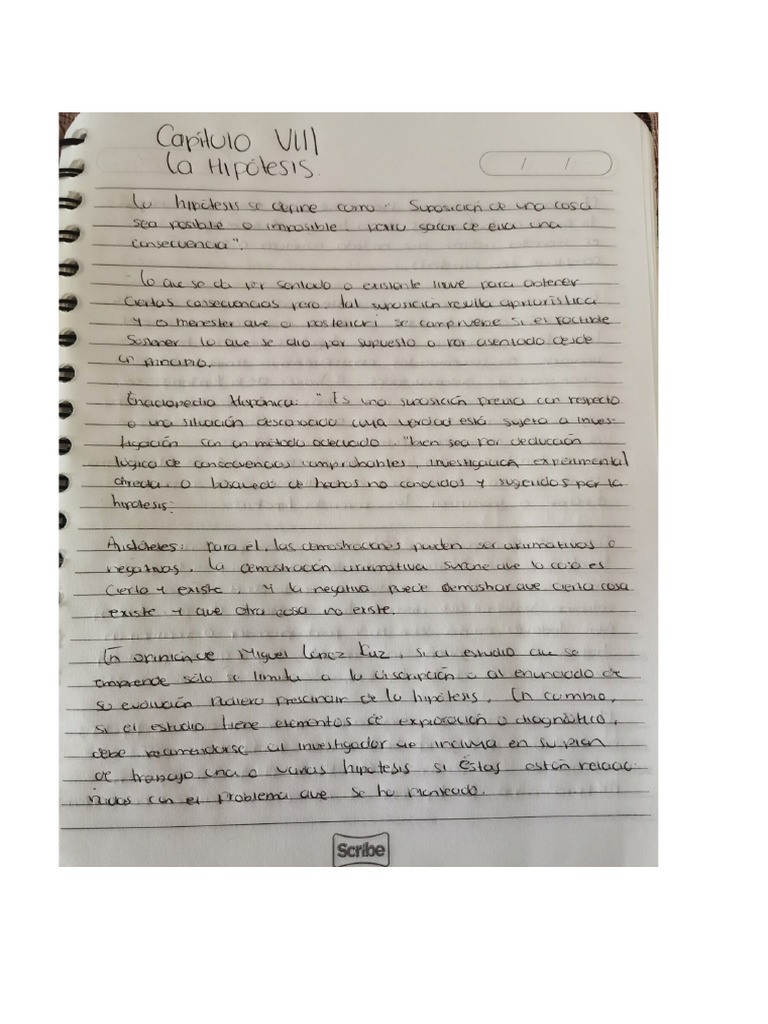 Capítulo VIII
La Hipótesis.
La hipótesis se define como: "Suposición de una cosa
sea posible o imposible para sacar de ella una
consecuencia".
Lo que se da por sentado o existente sirve para obtener
ciertas consecuencias pero tal suposición resulta apriorística
y es menester que a posteriori se compruebe si es factible
sostener lo que se dio por supuesto o por asentado desde
un principio.
Enciclopedia Hispánica: "Es una suposición previa con respecto
a una situación desconocida cuya verdad está sujeta a inves-
tigación con un método adecuado. "bien sea por deducción
lógica de consecuencias comprobables, investigación experimental
directa, o búsqueda de hechos no conocidos y sugeridos por la
hipótesis:
Aristóteles: para él, las demostraciones pueden ser afirmativas o
negativas, la demostración afirmativa supone que la cosa es
cierta y existe, y la negativa puede demostrar que cierta cosa
existe y que otra cosa no existe.
En opinión de Miguel López Ruz, si el estudio que se
emprende sólo se limita a la discripción o al enunciado de
su evolución pudiera prescindir de la hipótesis. En cambio,
si el estudio tiene elementos de exploración o diagnóstico,
debe recomendarse al investigador que incluya en su plan
de trabajo una o varias hipótesis si éstas están relacio
nadas con el problema que se ha planteado.
Scribe